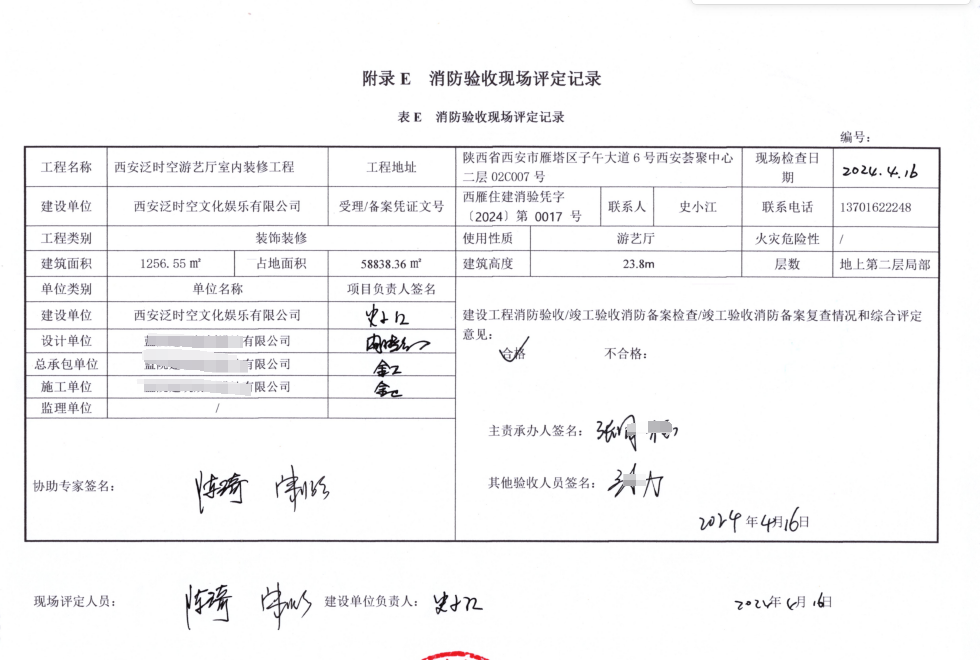 附录 E 消防验收现场评定记录
表 E 消防验收现场评定记录
编号：
工程名称 西安泛时空游艺厅室内装修工程 工程地址 陕西省西安市雁塔区子午大道 6 号西安荟聚中心二层 02C007 号 现场检查日期 2024.4.16
建设单位 西安泛时空文化娱乐有限公司 受理/备案凭证文号 西雁住建消验凭字〔2024〕第 0017 号 联系人 史小江 联系电话 13701622248
工程类别 装饰装修 使用性质 游艺厅 火灾危险性 /
建筑面积 1256.55 ㎡ 占地面积 58838.36 ㎡ 建筑高度 23.8m 层数 地上第二层局部
单位类别 单位名称 项目负责人签名
建设单位 西安泛时空文化娱乐有限公司 史小江
设计单位 有限公司
总承包单位 有限公司
施工单位 有限公司
监理单位 /
建设工程消防验收/竣工验收消防备案检查/竣工验收消防备案复查情况和综合评定
意见：
合格 不合格：
主责承办人签名：
其他验收人员签名：
2024 年 4月 16日
协助专家签名：
现场评定人员： 建设单位负责人： 史小江 2024年 4月 16日